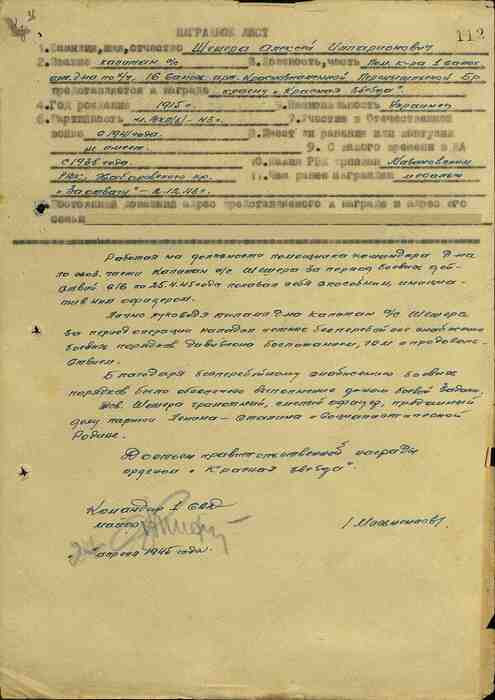 112
НАГРАДНОЙ ЛИСТ
1. Фамилия, имя, отчество Шешера Алексей Илларионович
2. Звание капитан а/с 3. Должность, часть Пом. к-ра 1 отдел.
16 арт. Краснознаменной Перекопской Бр
представляется к награде ордену "Красная Звезда".
4. Год рождения 1915 г. 5. Национальность Украинец
6. Партийность 45 г. 7. Участие в Отечественной
войне с 1941 года. 8. Имеет ли ранения или контузии
не имеет. 9. С какого времени в КА
с 1936 года. 10. Каким РВК призван
РВК, Хабаровского кр. 11. Чем ранее награжден медалью
"За отвагу" -
Постоянный домашний адрес представляемого к награде и адрес его
семьи
Работая на должности помощника командира д-на
по части капитан а/с Шешера за период боевых дей-
ствий с 16 по 25.4.45 года показал себя способным, инициа-
тивным офицером.
Лично руководя тылами д-на капитан а/с Шешера
за период операции наладил четкое бесперебойное снабжение
боевых порядков дивизиона боеприпасами, ГСМ и продоволь-
ствием.
Благодаря бесперебойному снабжению боевых
порядков было обеспечено выполнение д-ном боевой задачи.
Тов. Шешера грамотный, смелый офицер, преданный
делу партии Ленина - Сталина и Социалистической
Родине.
Достоин правительственной награды
орденом "Красная Звезда".
Командир 1
майор
24 апреля 1945 года.